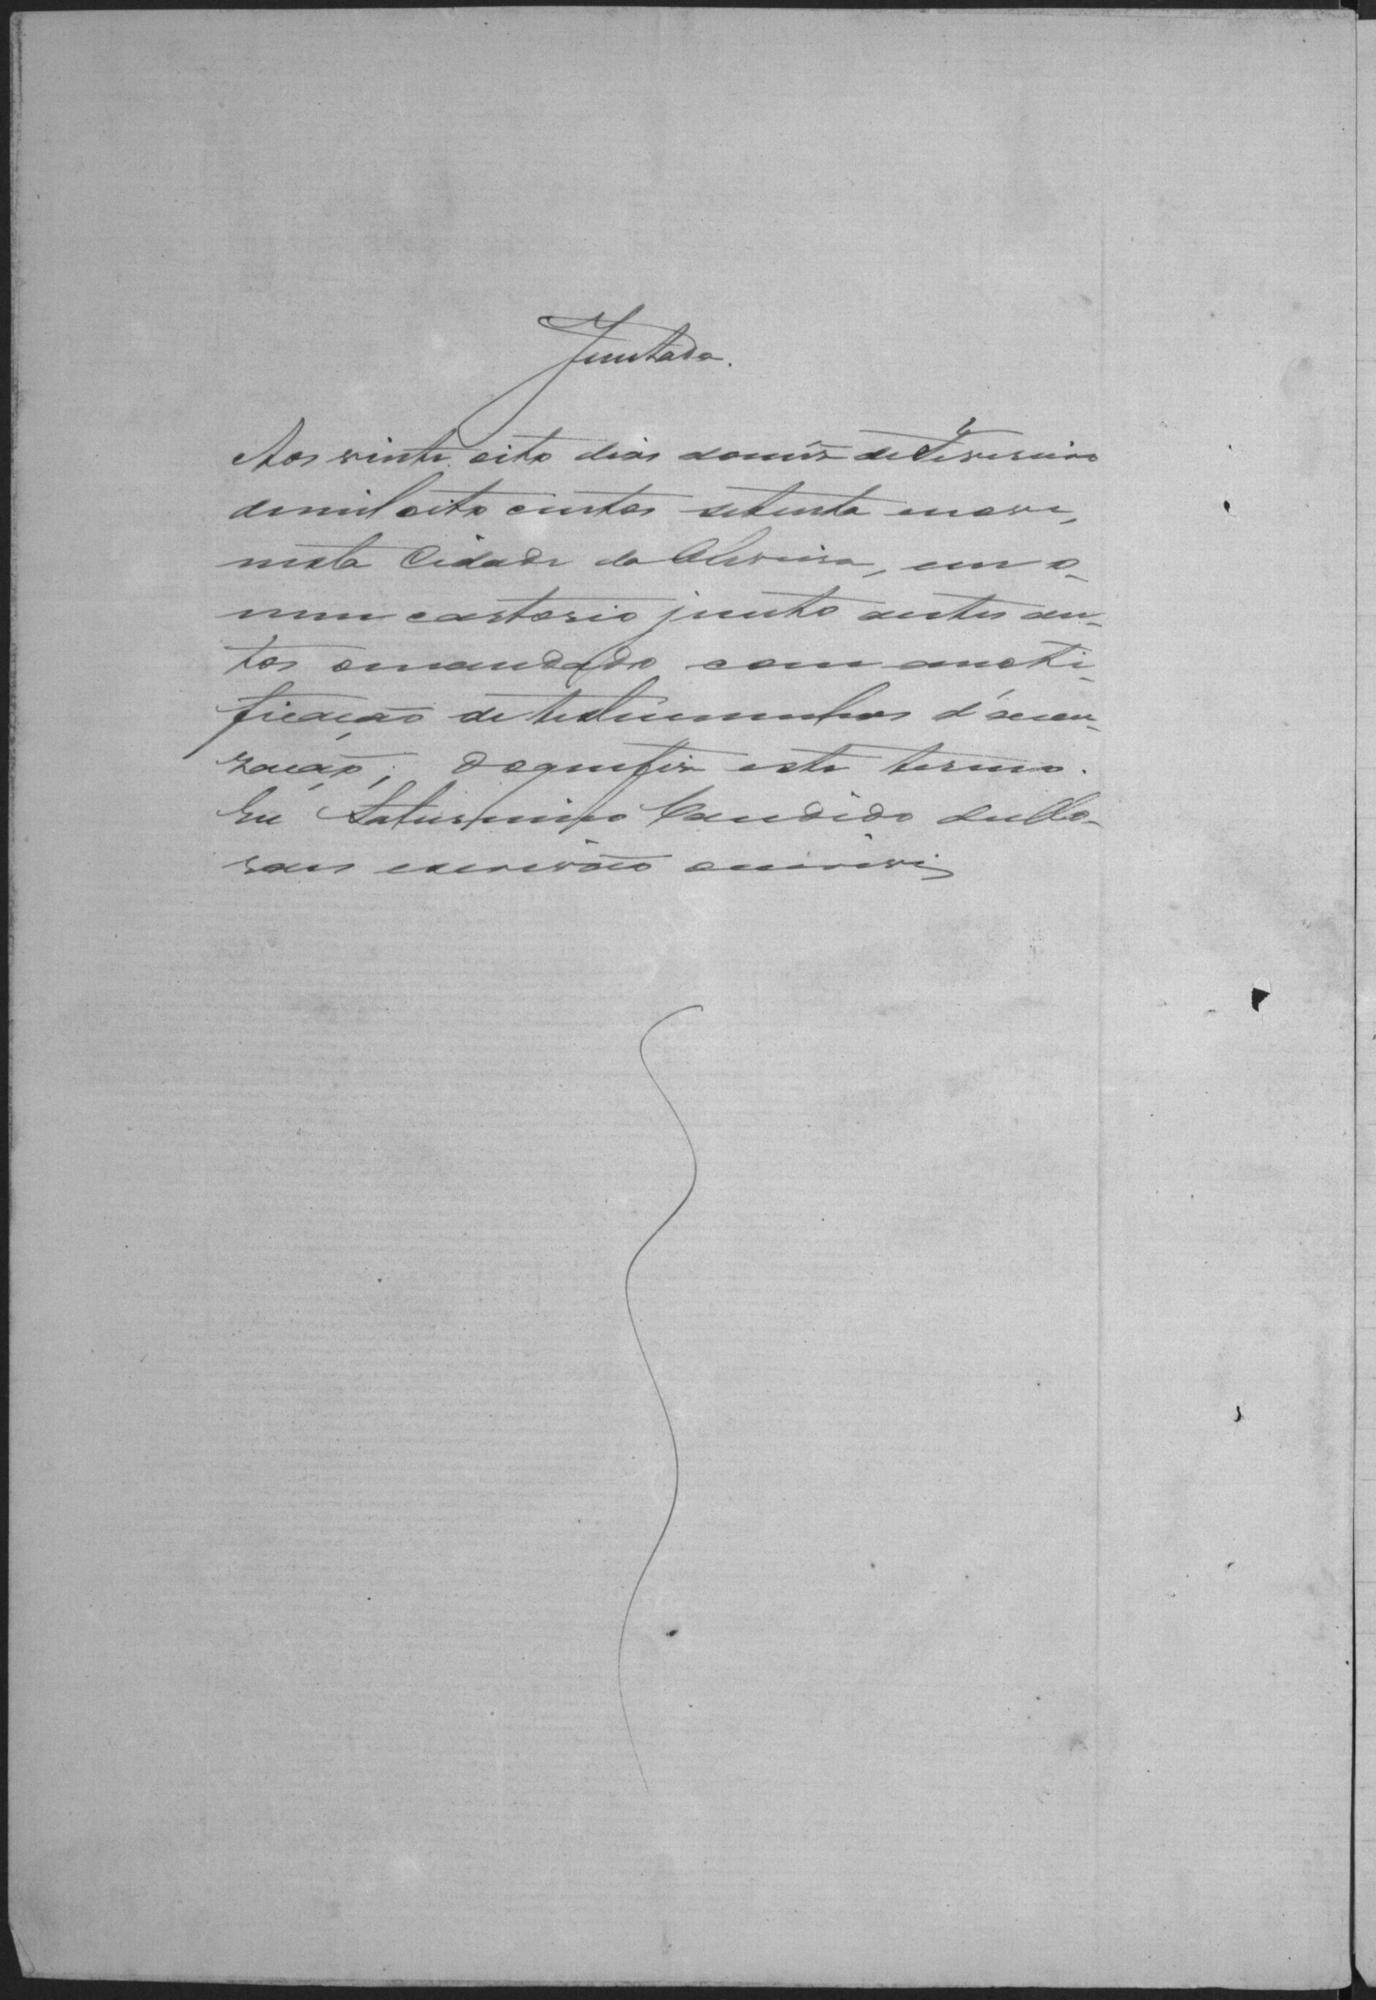 Juntada.
Aos vinte oito dias do mês de Fevereiro
de mil oito centos setenta e nove,
nesta Cidade da Oliveira, em o
meu cartorio junto a estes au-
tos o mandado com a noti-
ficação de testimunhas d'accu-
zação; do que fiz este termo.
Eu Saturnino Candido
escrivão o escrevi